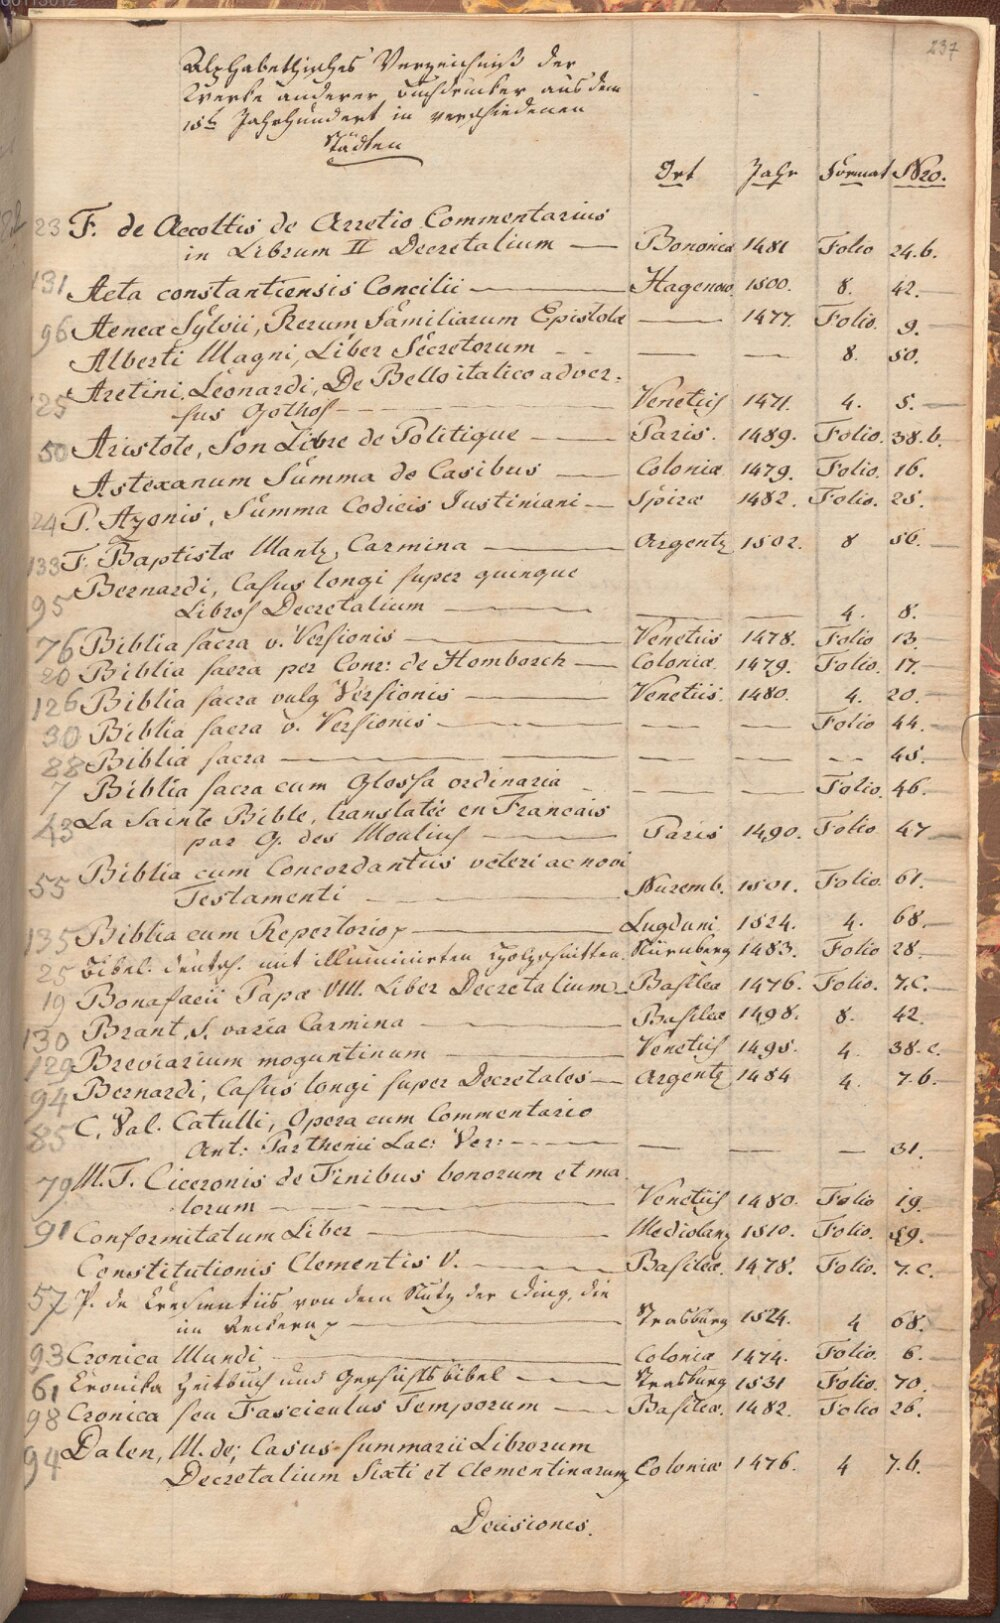 237
Alphabethisches Verzeichniß der
Werke anderer Buchdrucker aus dem
15t Jahrhundert in verschiedenen
Städten
Ort Jahr Format Nro.
23 F. de Accoltis de Arretio Commentarius
in Librum II Decretalium — Bononiæ 1481 Folio 24.b.
131 Acta constantiensis Concilii — Hagenow. 1500. 8. 42.
96 Aeneæ Sylvii, Rerum Familiarum Epistolæ — 1477. Folio. 9.
Alberti Magni, Liber Secretorum — — 8. 50.
Aretini, Leonardi, De Bello italico adver:
125 sus Gothos — Venetiis 1471. 4. 5.
50 Aristote, Son Livre de Politique — Paris. 1489. Folio. 38.b.
Astexanum Summa de Casibus — Coloniæ 1479. Folio. 16.
24 P. Azonis, Summa Codicis Iustiniani — Spiræ 1482. Folio. 25.
133 F. Baptistæ Mant, Carmina — Argent 1502. 8 56.
Bernardi, Casus longi super quinque
95 Libros Decretalium — — — 4. 8.
76 Biblia sacra v. Versionis — Venetiis 1478. Folio 13.
20 Biblia sacra per Conr: de Homborch — Coloniæ. 1479. Folio. 17.
126 Biblia sacra vulg Versionis — Venetiis. 1480. 4. 20.
30 Biblia sacra v. Versionis — — — Folio 44.
88 Biblia sacra — — — — 45.
7 Biblia sacra cum Glossa ordinaria — — — Folio. 46.
43 La Sainte Bible, translatée en Francais
par G. des Moulins — Paris 1490. Folio 47
Biblia cum Concordantiis veteri ac novi
55 Testamenti — Nuremb. 1501. Folio. 61.
135 Biblia cum Repertorio — Lugduni 1524. 4. 68.
25 Bibel. deutsch. mit illuminirten Holzschnitten. Nürnberg 1483. Folio 28.
19 Bonafacii Papæ VIII. Liber Decretalium — Basileæ 1476. Folio. 7.c.
130 Brant, S. varia Carmina — Basileæ 1498. 8. 42.
129 Breviarium moguntinum — Venetiis 1495. 4. 38.c.
94 Bernardi, Casus longi super Decretales — Argent 1484 4. 7.b.
85 C. Val. Catulli, Opera cum Commentario
Ant: Parthenii Lac: Ver: — — — — 31.
79 M. T. Ciceronis de Finibus bonorum et ma
lorum — Venetiis 1480. Folio 19.
91 Conformitatum Liber — Mediolan 1510. Folio. 59.
Constitutionis Clementis V. — Basileæ. 1478. Folio. 7.c.
57 P. de Cresientiis von dem Nutz der Ding, die
in — Strasburg 1524. 4 68.
93 Cronica Mundi — Coloniæ 1474. Folio. 6.
61 Cronika Zeitbuch und Geschichtsbibel — Strasburg 1531 Folio. 70.
98 Cronica seu Fasciculus Temporum — Basileæ. 1482. Folio 26.
94 Dalen, M. de; Casus summarii Librorum
Decretalium Sixti et Clementinarum Coloniæ 1476. 4 7.b.
Decisiones.